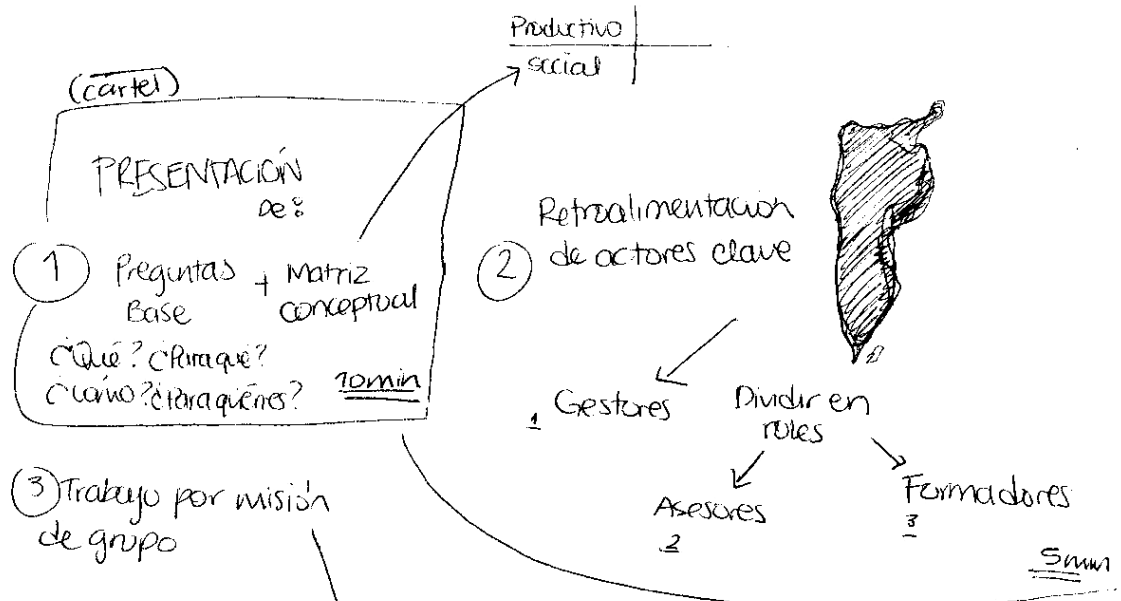 Productivo
social
(cartel)
PRESENTACIÓN
De:
1 Preguntas + Matriz
Base conceptual
¿Qué? ¿Para qué?
¿Cómo? ¿Para quiénes? 10min
2 Retroalimentación
de actores clave
1 Gestores
Dividir en
roles
Asesores
2
Formadores
3
5min
3 Trabajo por misión
de grupo